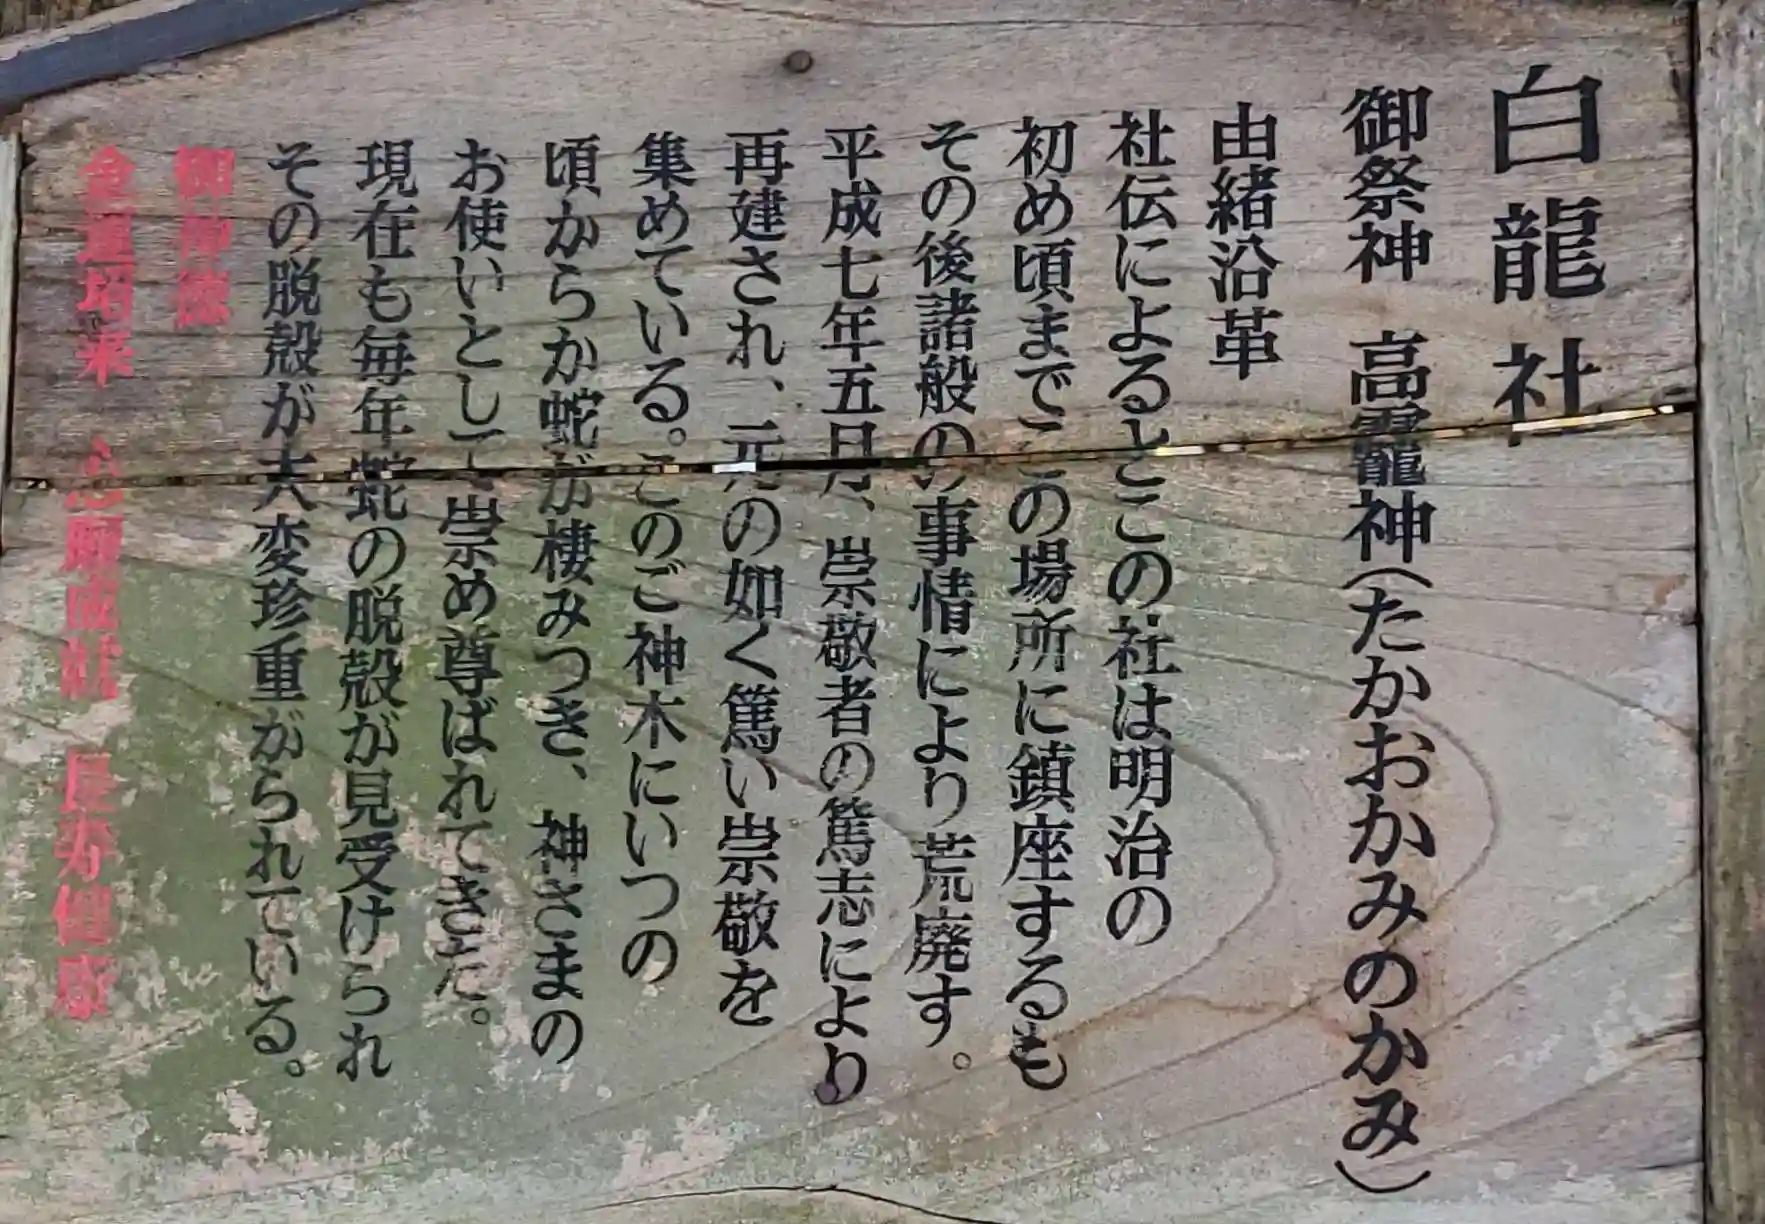 白龍社
御祭神　高靇神(たかおかみのかみ)
由緒沿革
社伝によるとこの社は明治の
初め頃までこの場所に鎮座するも
その後諸般の事情により荒廃す。
平成七年五月、崇敬者の篤志により
再建され、元の如く篤い崇敬を
集めている。このご神木にいつの
頃からか蛇が棲みつき、神さまの
お使いとして崇め尊ばれてきた。
現在も毎年蛇の脱殻が見受けられ
その脱殻が大変珍重がられている。
御神徳
金運招来　心願成就　長寿健康